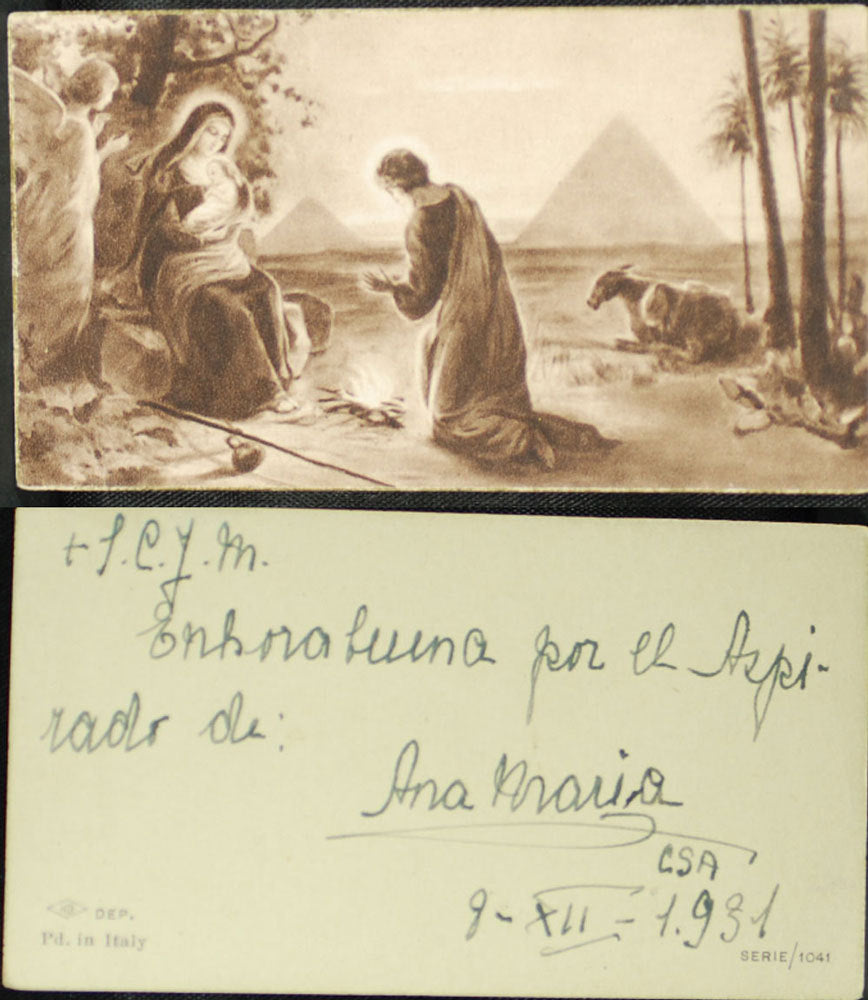 + S.C.J.M.
Enhorabuena por el Aspi-
rado de:
Ana Maria
CSA
8-XII-1.931
DEP.
Pd. in Italy
SERIE/1041